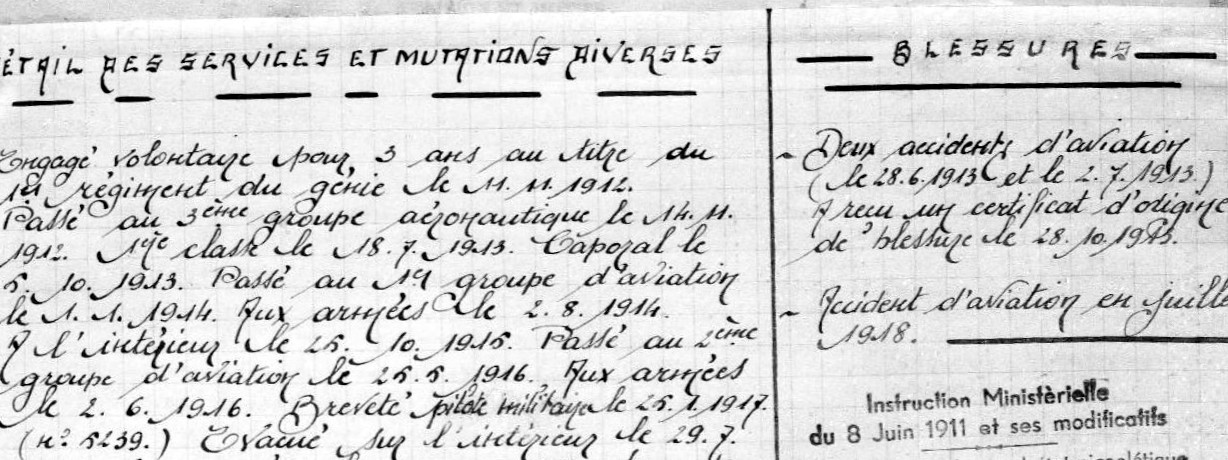 ÉTAIL DES SERVICES ET MUTATIONS DIVERSES
Engagé volontaire pour 3 ans au titre du
1er régiment du génie le 11. 11. 1912.
Passé au 3ème groupe aéronautique le 14. 11.
1912. 1ère classe le 18. 7. 1913. Caporal le
5. 10. 1913. Passé au 1er groupe d'aviation
le 1. 1. 1914. Aux armées le 2. 8. 1914.
A l'intérieur le 25. 10. 1915. Passé au 2ème
groupe d'aviation le 25. 5. 1916. Aux armées
le 2. 6. 1916. Breveté pilote militaire le 25. 1. 1917.
(n° 5239.) Evacué sur l'intérieur le 29. 7.
BLESSURES
- Deux accidents d'aviation
(le 28.6.1913 et le 2.7.1913.)
A reçu un certificat d'origine
de blessure le 28. 10. 1913.
- Accident d'aviation en juille
1918.
Instruction Ministèrielle
du 8 Juin 1911 et ses modificatifs